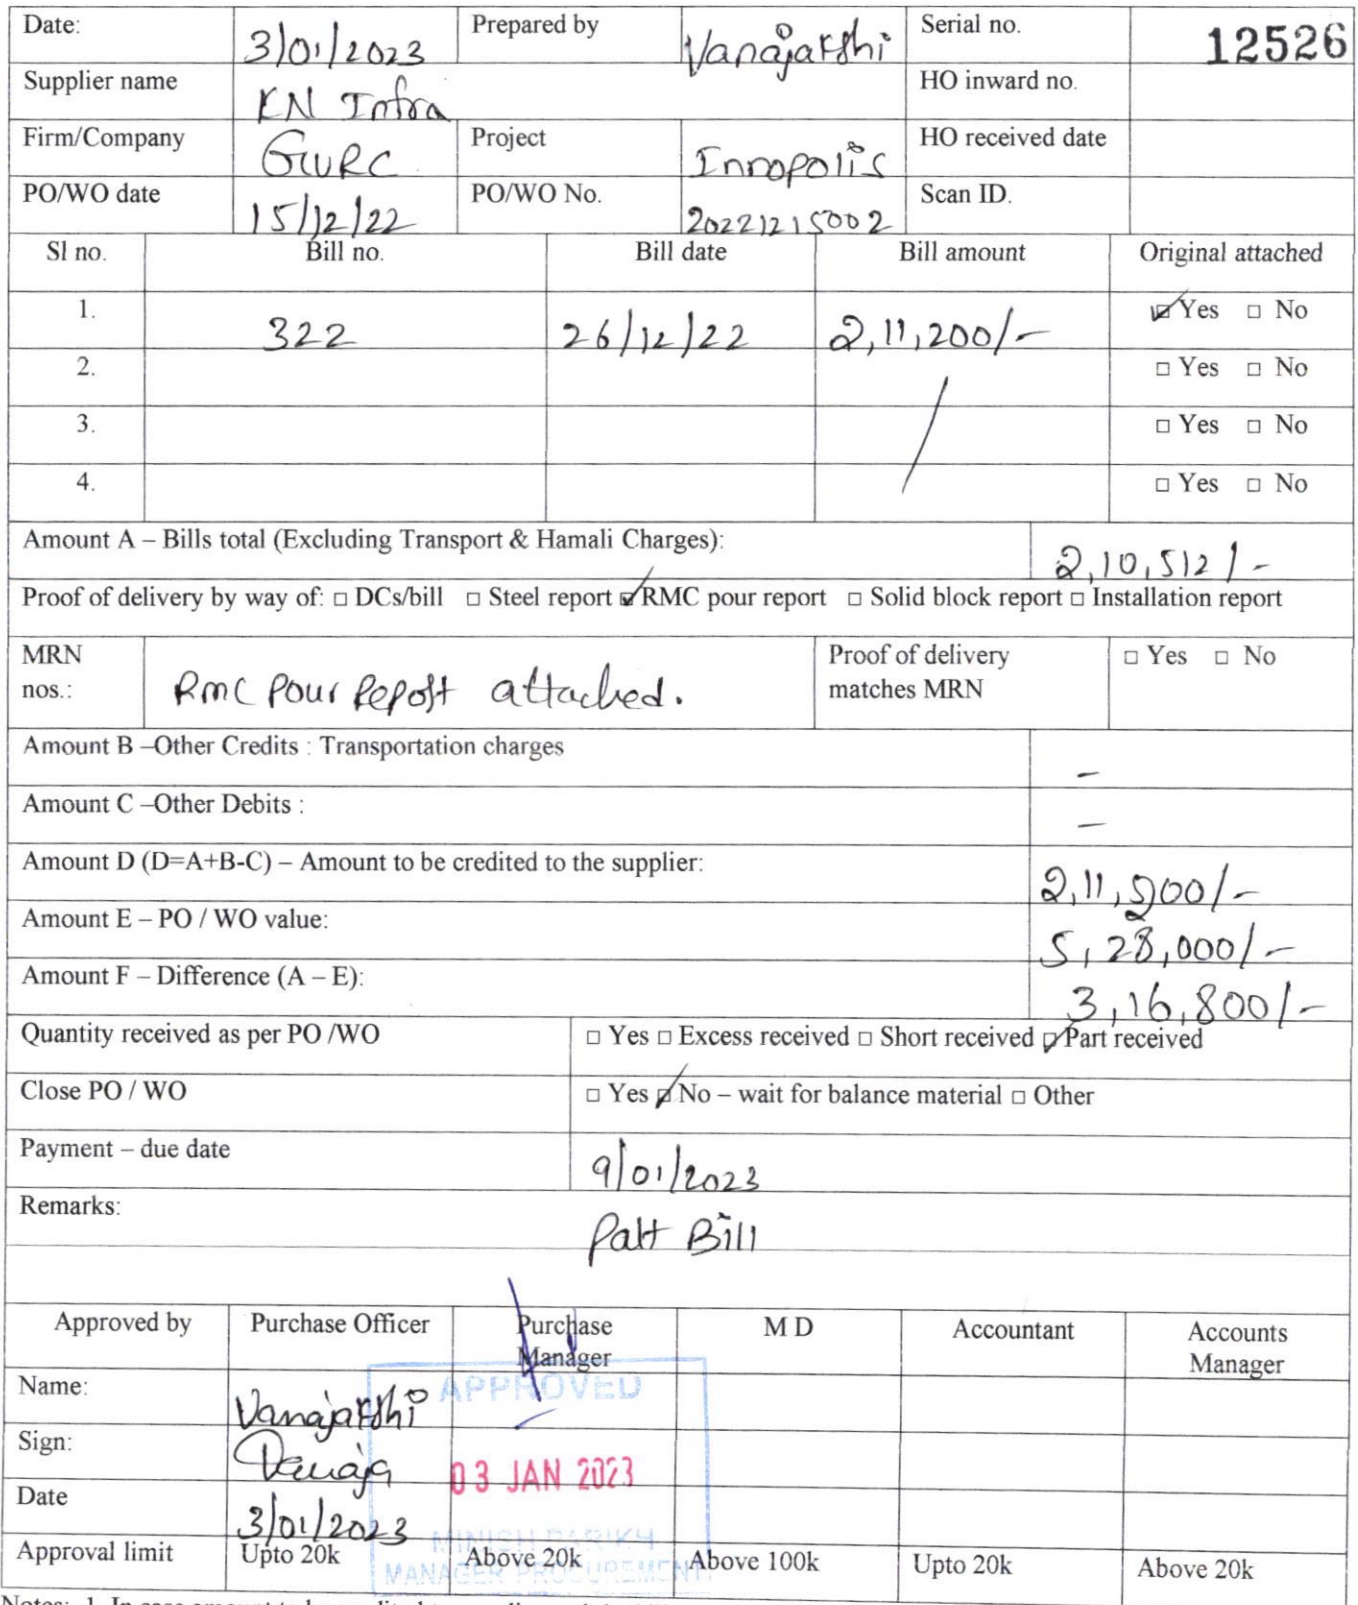 Date: 3/01/2023 Prepared by Vanajakshi Serial no. 12526
Supplier name KN Infra HO inward no.
Firm/Company GVRC Project Innopolis HO received date
PO/WO date 15/12/22 PO/WO No. 20221215002 Scan ID.
Sl no. Bill no. Bill date Bill amount Original attached
1. 322 26/12/22 2,11,200/- ☑ Yes □ No
2. □ Yes □ No
3. □ Yes □ No
4. □ Yes □ No
Amount A – Bills total (Excluding Transport & Hamali Charges): 2,10,512/-
Proof of delivery by way of: □ DCs/bill □ Steel report ☑ RMC pour report □ Solid block report □ Installation report
MRN nos.: Rmc Pour Report attached. Proof of delivery matches MRN □ Yes □ No
Amount B –Other Credits : Transportation charges -
Amount C –Other Debits : -
Amount D (D=A+B-C) – Amount to be credited to the supplier: 2,11,200/-
Amount E – PO / WO value: 5,28,000/-
Amount F – Difference (A – E): 3,16,800/-
Quantity received as per PO /WO □ Yes □ Excess received □ Short received ☑ Part received
Close PO / WO □ Yes ☑ No – wait for balance material □ Other
Payment – due date 9/01/2023
Remarks: Part Bill
Approved by Purchase Officer Purchase Manager M D Accountant Accounts Manager
APPROVED
Name: Vanajakshi
Sign: Vanaja
03 JAN 2023
Date 3/01/2023
MINISH PARIKH
Approval limit Upto 20k Above 20k Above 100k Upto 20k Above 20k
MANAGER PROCUREMENT